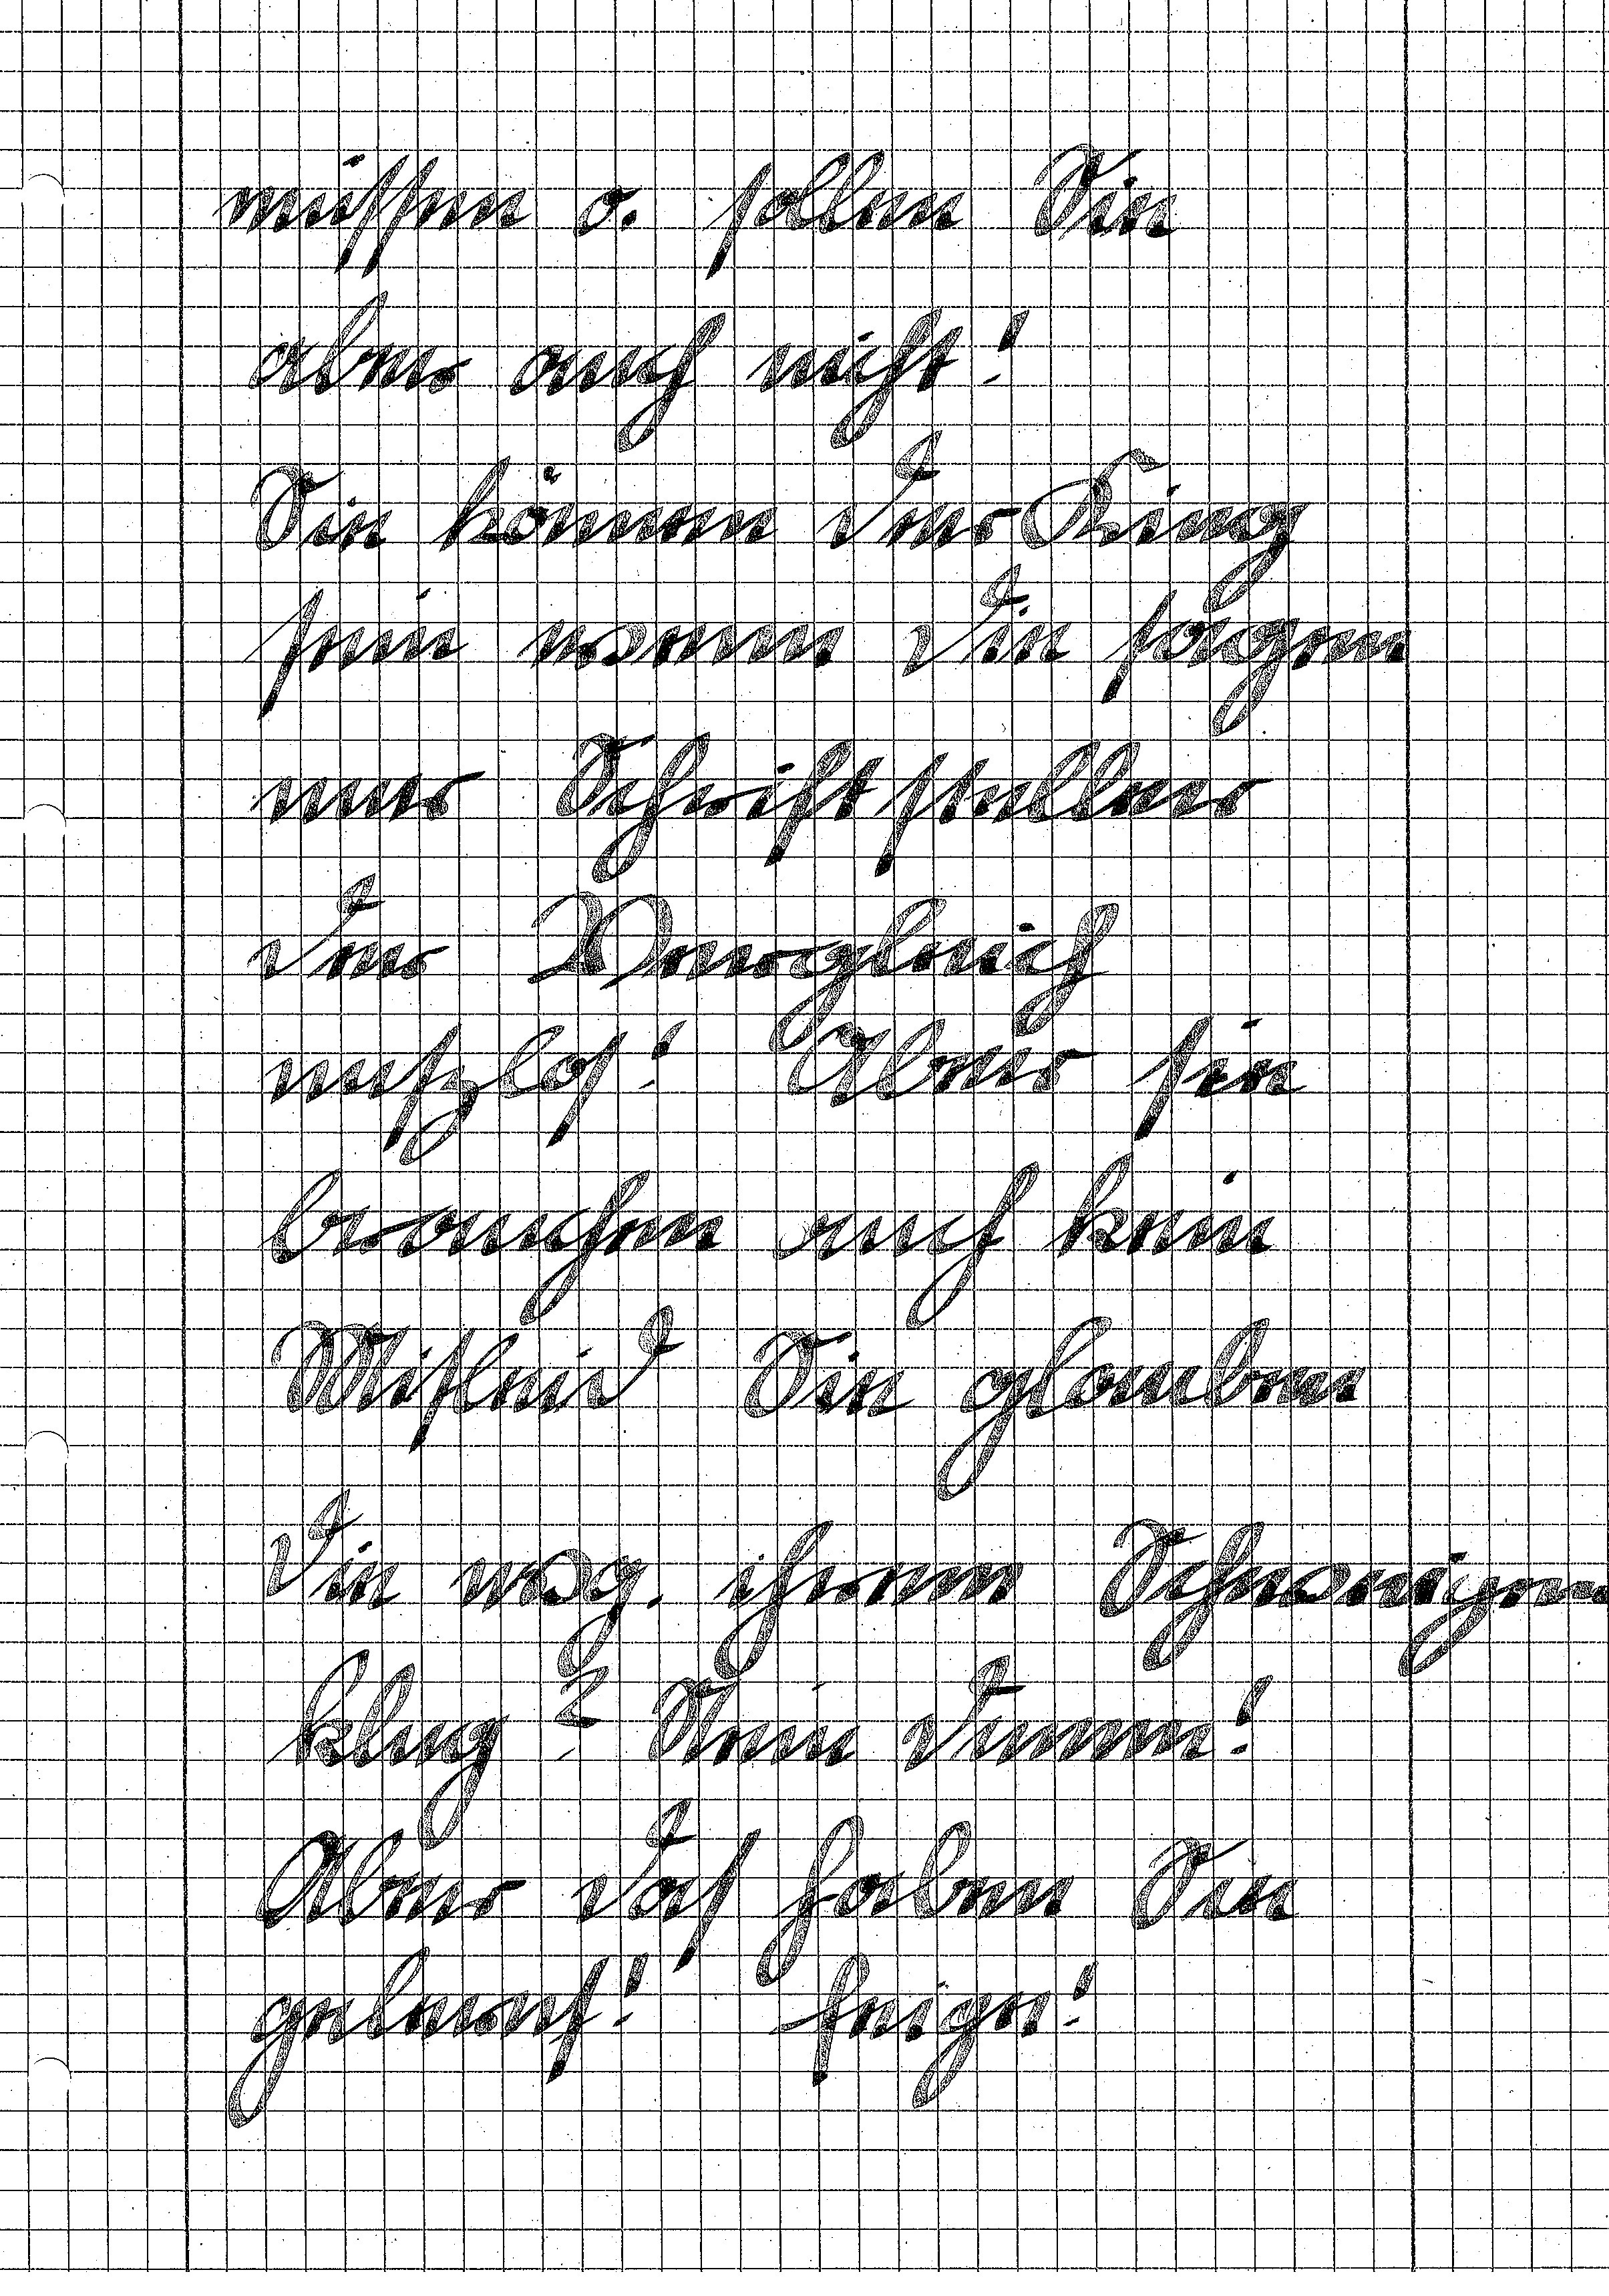 müssen o. sollen Sie
aber auch nicht!
Sie können der King
sein wenn die sagen
nur Schriftsteller
der Vergleich
nutzlos! Aber sie
brauchen auch kein
Mitleid Sie glauben
die wg. ihrem Schweigen
klug? Nein dumm!
Aber das haben Sie
gelernt! feige!